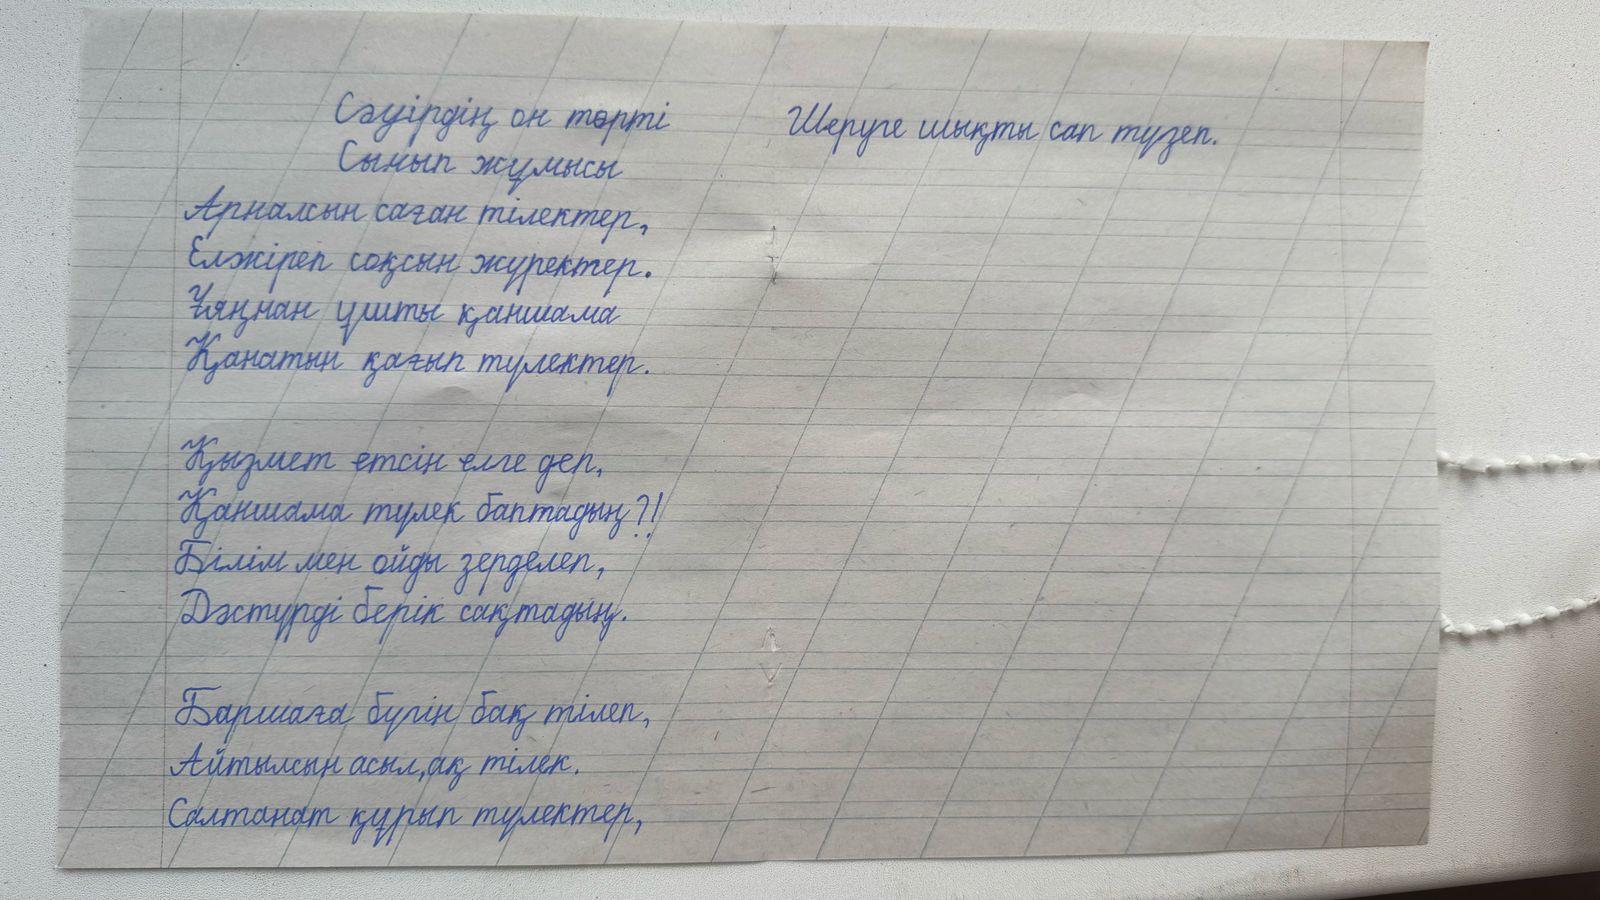 Сәуірдің он төрті
Сынып жұмысы
Арналсын саған тілектер,
Елжіреп соқсын жүректер.
Ұяңнан ұшты қаншама
Қанатын қағып түлектер.
Қызмет етсін елге деп,
Қаншама түлек баптадың?!
Білім мен ойды зерделеп,
Дәстүрді берік сақтадың.
Баршаға бүгін бақ тілеп,
Айтылсын асыл, ақ тілек.
Салтанат құрып түлектер,
Шеруге шықты сап түзеп.